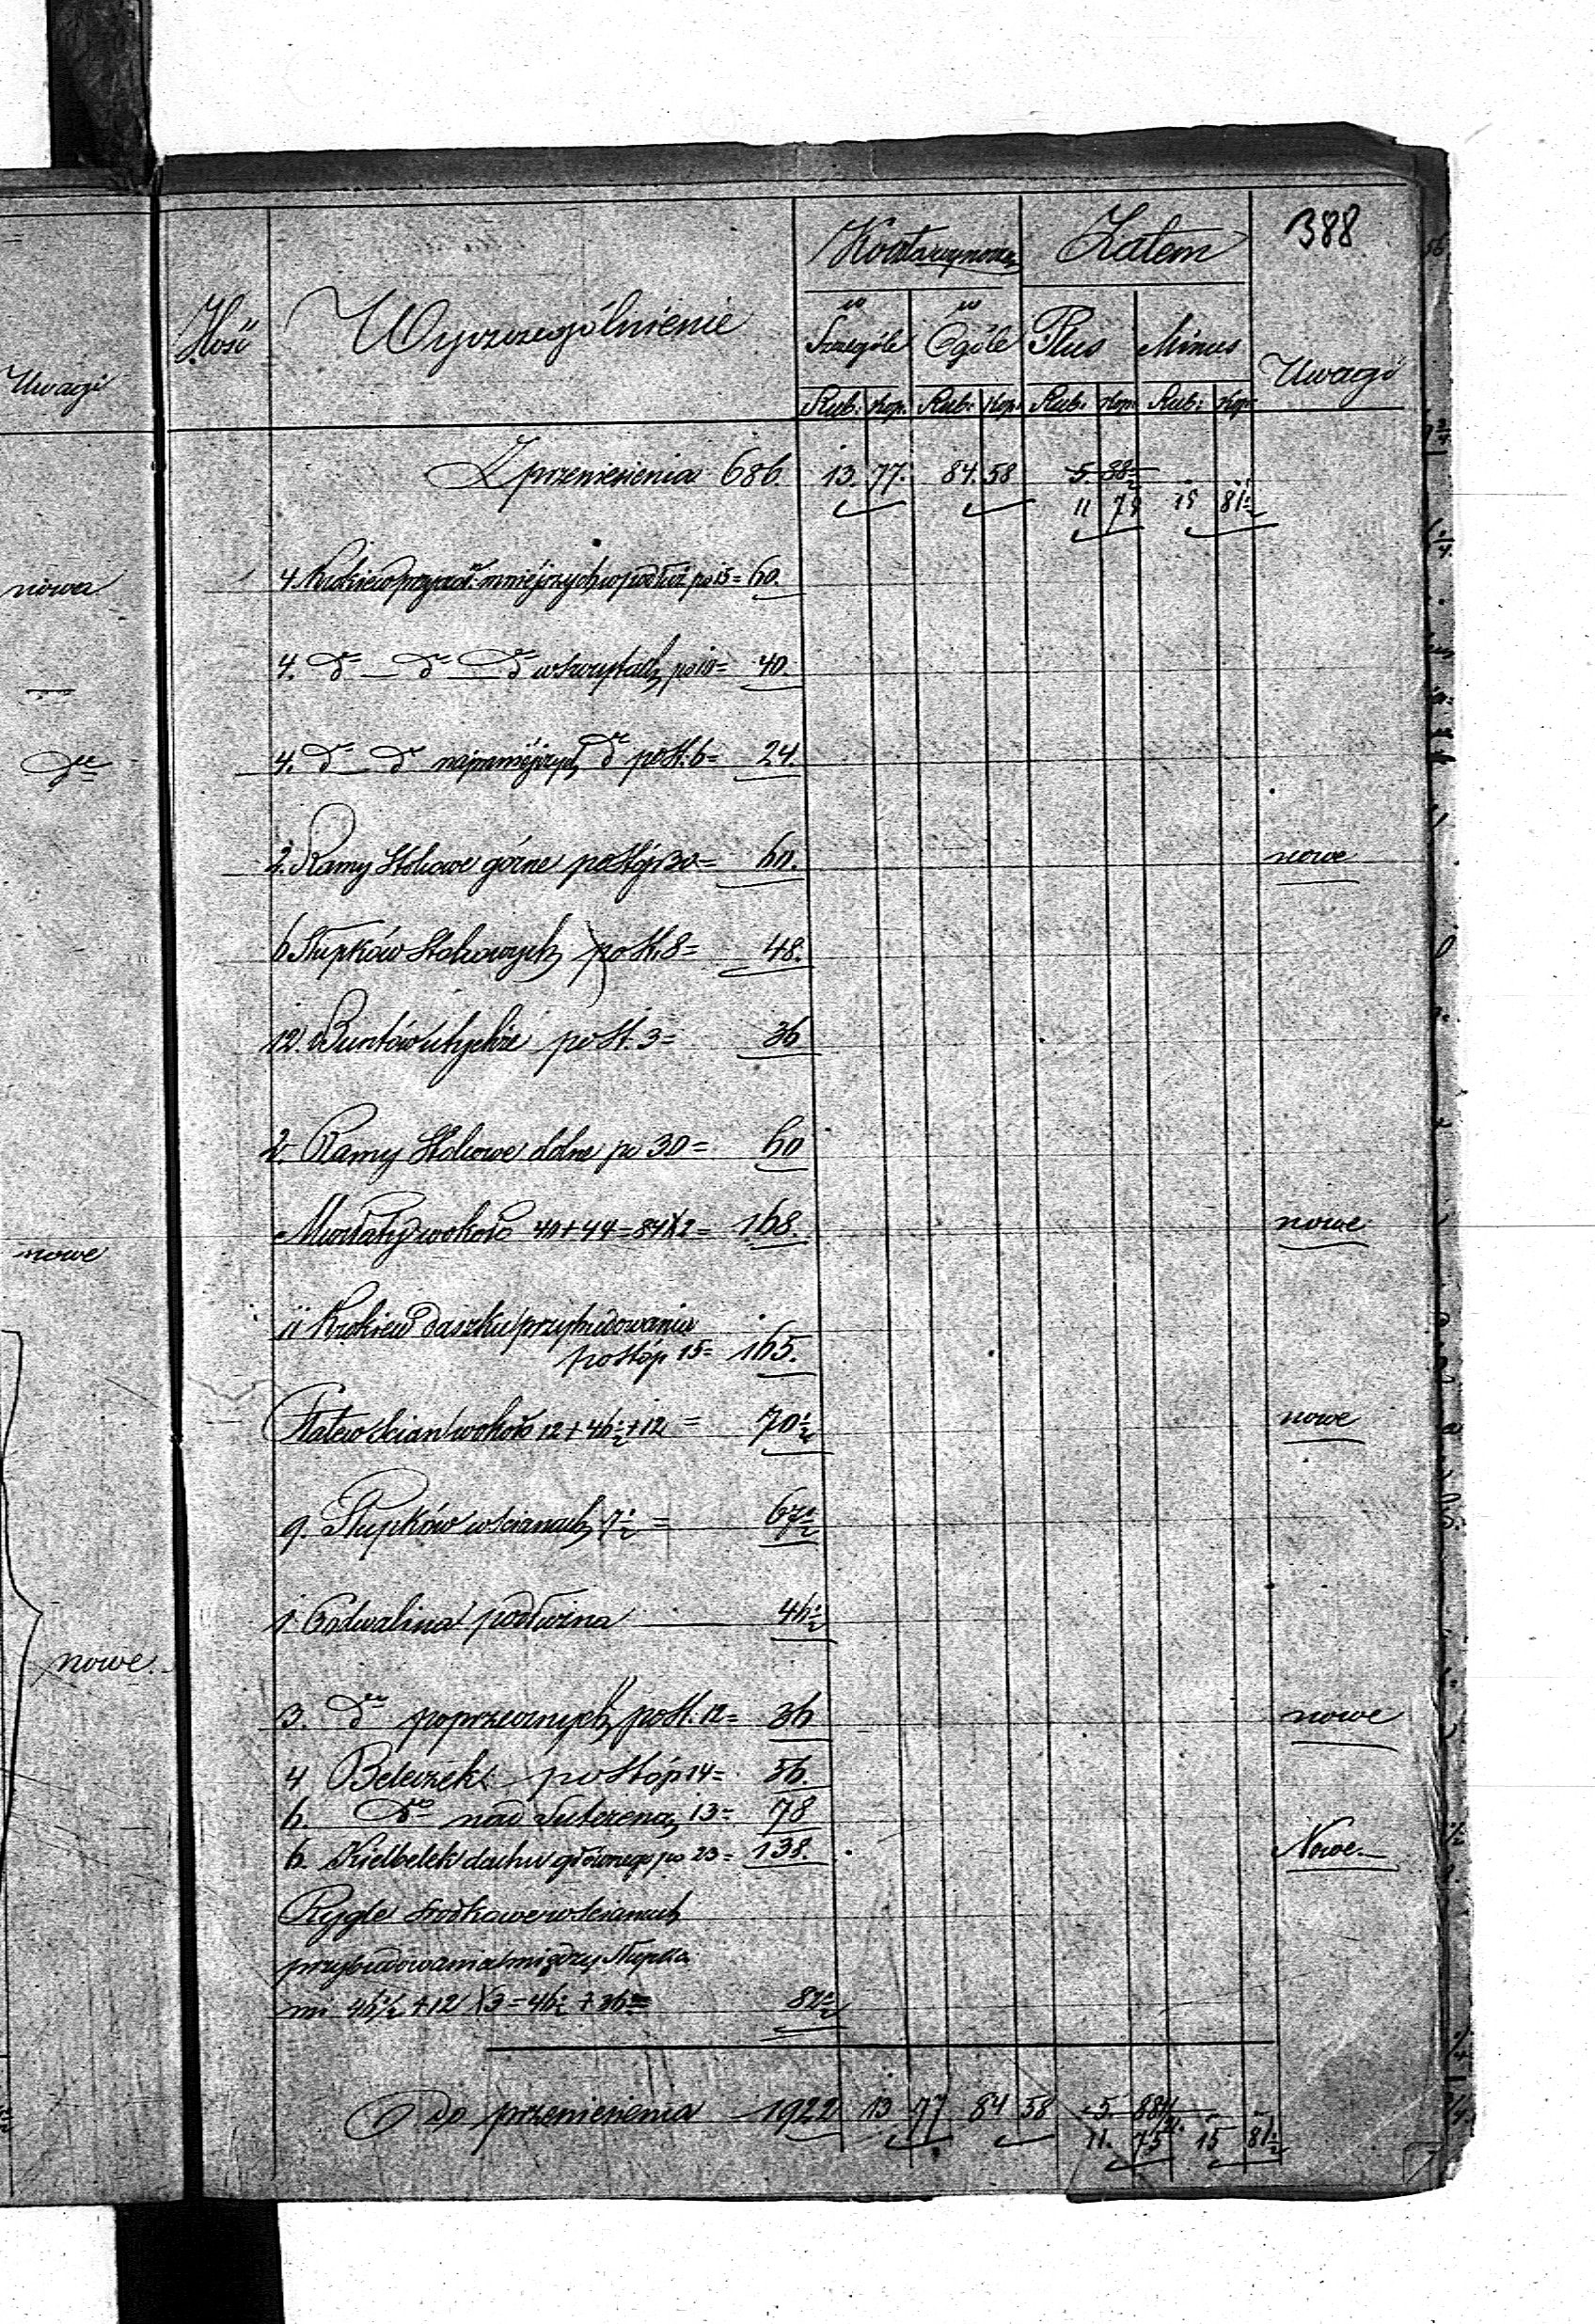 388
Zatem
w w
Ilość Wyszczególnienie Szczególe Ogóle Plus Minus Uwagi
Uwagi
Rub. Kop. Rub. Kop. Rub. Kop. Rub. Kop.
Z przeniesienia 686. 13. 77. 84. 58 5. 88½
11 75 15 81½
nowa 4. Krokiew mniejszych po 15 = 60.
4. dto dto dto po 10 = 40.
dto 4. dto dto najmniejszych dto po st. 6 = 24.
2. Ramy Stolcowe górne po stóp 30 = 60. nowe
6 Słupków Stolcowych po st. 8 = 48.
12. Buntów tychże po st. 3 = 36
2. Ramy Stolcowe dolne po 30 = 60
Murłaty wokoło 40 + 44 = 84 X 2 = 168. nowe
nowe
11 Krokiew daszku przybudowania
po stóp 15 = 165.
Płatew ścian wokoło 12 + 46½ + 12 = 70½ nowe
9. Słupków w ścianach 7½ = 67½
1. Podwalina podłużna 46½
nowe.
3. dto poprzecznych po st. 12 = 36 nowe
4 Beleczek po stóp 14 = 56.
6. dto nad Sutereną 13 = 78
6. Kielbelek dachu głównego po 23 = 138. Nowe
Rygle środkowe w ścianach
przybudowania między Słupka
mi 46½ + 12 X 3 = 46½ + 36 = 82½
Do przeniesienia 1922 13 77 84 58 5 88½
11. 75 15 81½